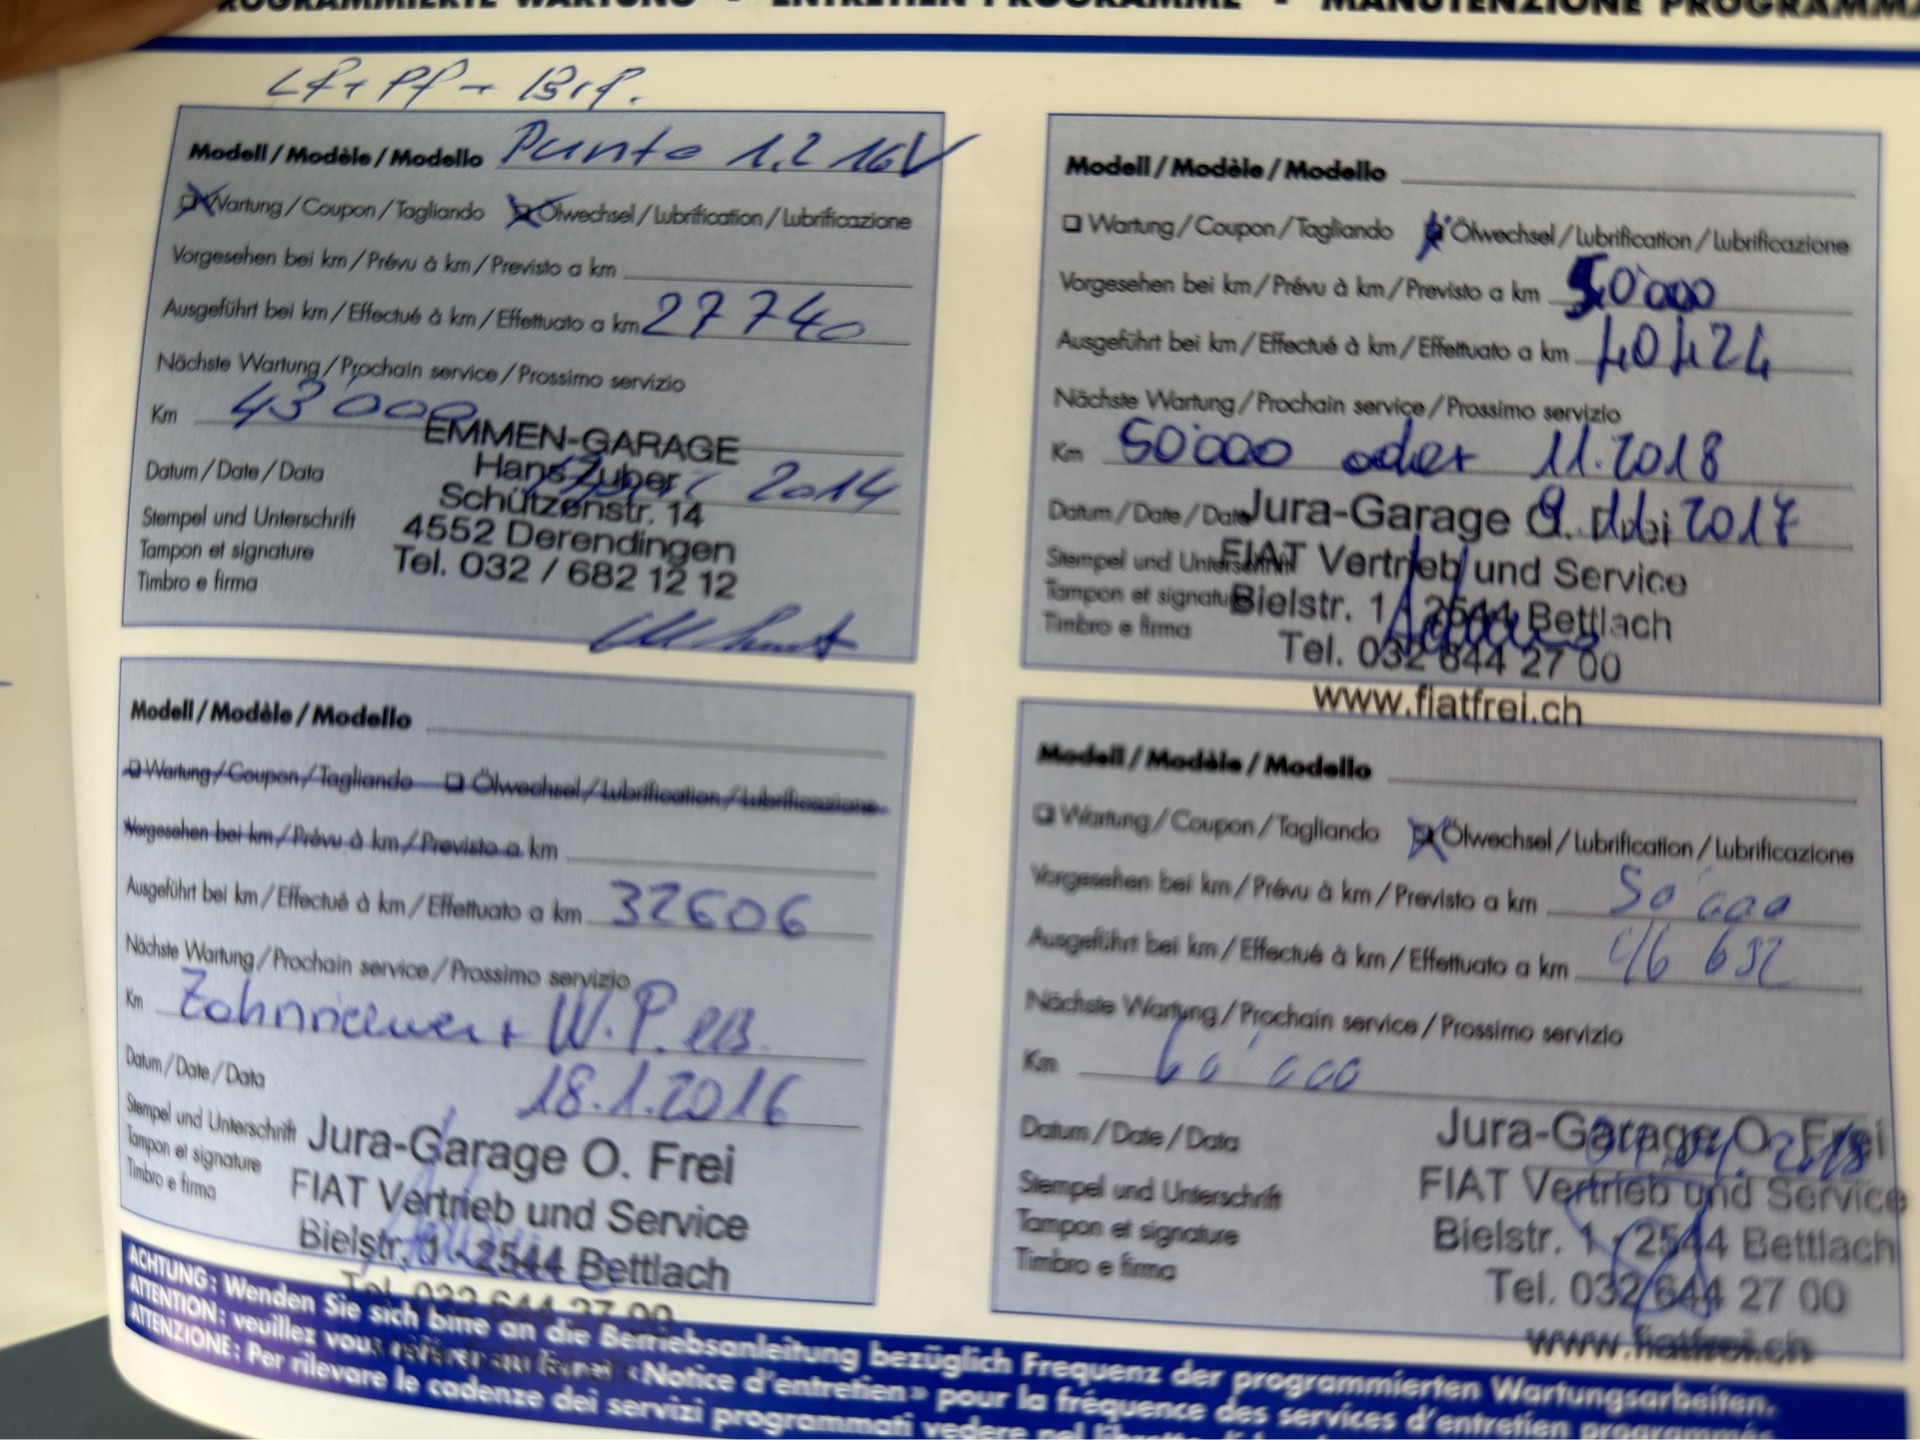 PROGRAMMIERTE WARTUNG • ENTRETIEN PROGRAMME • MANUTENZIONE PROGRAMMA
LF + PF + Brf.
Modell / Modèle / Modello Punto 1,2 16V
Wartung / Coupon / Tagliando Ölwechsel / Lubrification / Lubrificazione
Vorgesehen bei km / Prévu à km / Previsto a km
Ausgeführt bei km / Effectué à km / Effettuato a km 27740
Nächste Wartung / Prochain service / Prossimo servizio
Km 43000
EMMEN-GARAGE
Datum / Date / Data 2014
Hans Zuber
Stempel und Unterschrift
Schützenstr. 14
Tampon et signature
4552 Derendingen
Timbro e firma
Tel. 032 / 682 12 12
Modell / Modèle / Modello
Wartung / Coupon / Tagliando Ölwechsel / Lubrification / Lubrificazione
Vorgesehen bei km / Prévu à km / Previsto a km
Ausgeführt bei km / Effectué à km / Effettuato a km 32606
Nächste Wartung / Prochain service / Prossimo servizio
Km Zahnriemen + W.P. ers.
Datum / Date / Data 18.1.2016
Stempel und Unterschrift
Tampon et signature
Timbro e firma
Jura-Garage O. Frei
FIAT Vertrieb und Service
Bielstr. 1 - 2544 Bettlach
Tel. 032 644 27 00
Modell / Modèle / Modello
Wartung / Coupon / Tagliando Ölwechsel / Lubrification / Lubrificazione
Vorgesehen bei km / Prévu à km / Previsto a km 50'000
Ausgeführt bei km / Effectué à km / Effettuato a km 40424
Nächste Wartung / Prochain service / Prossimo servizio
Km 50'000 oder 11.2018
Datum / Date / Data 2017
Stempel und Unterschrift
Tampon et signature
Timbro e firma
Jura-Garage
FIAT Vertrieb und Service
Bielstr. 1 2544 Bettlach
Tel. 032 644 27 00
www.fiatfrei.ch
Modell / Modèle / Modello
Wartung / Coupon / Tagliando Ölwechsel / Lubrification / Lubrificazione
Vorgesehen bei km / Prévu à km / Previsto a km 50'000
Ausgeführt bei km / Effectué à km / Effettuato a km 46 652
Nächste Wartung / Prochain service / Prossimo servizio
Km 60'000
Datum / Date / Data 2018
Stempel und Unterschrift
Tampon et signature
Timbro e firma
Jura-Garage O. Frei
FIAT Vertrieb und Service
Bielstr. 1 2544 Bettlach
Tel. 032 644 27 00
www.fiatfrei.ch
ACHTUNG: Wenden Sie sich bitte an die Betriebsanleitung bezüglich Frequenz der programmierten Wartungsarbeiten.
ATTENTION: veuillez vous référer au livret «Notice d'entretien» pour la fréquence des services d'entretien programmés
ATTENZIONE: Per rilevare le cadenze dei servizi programmati vedere nel